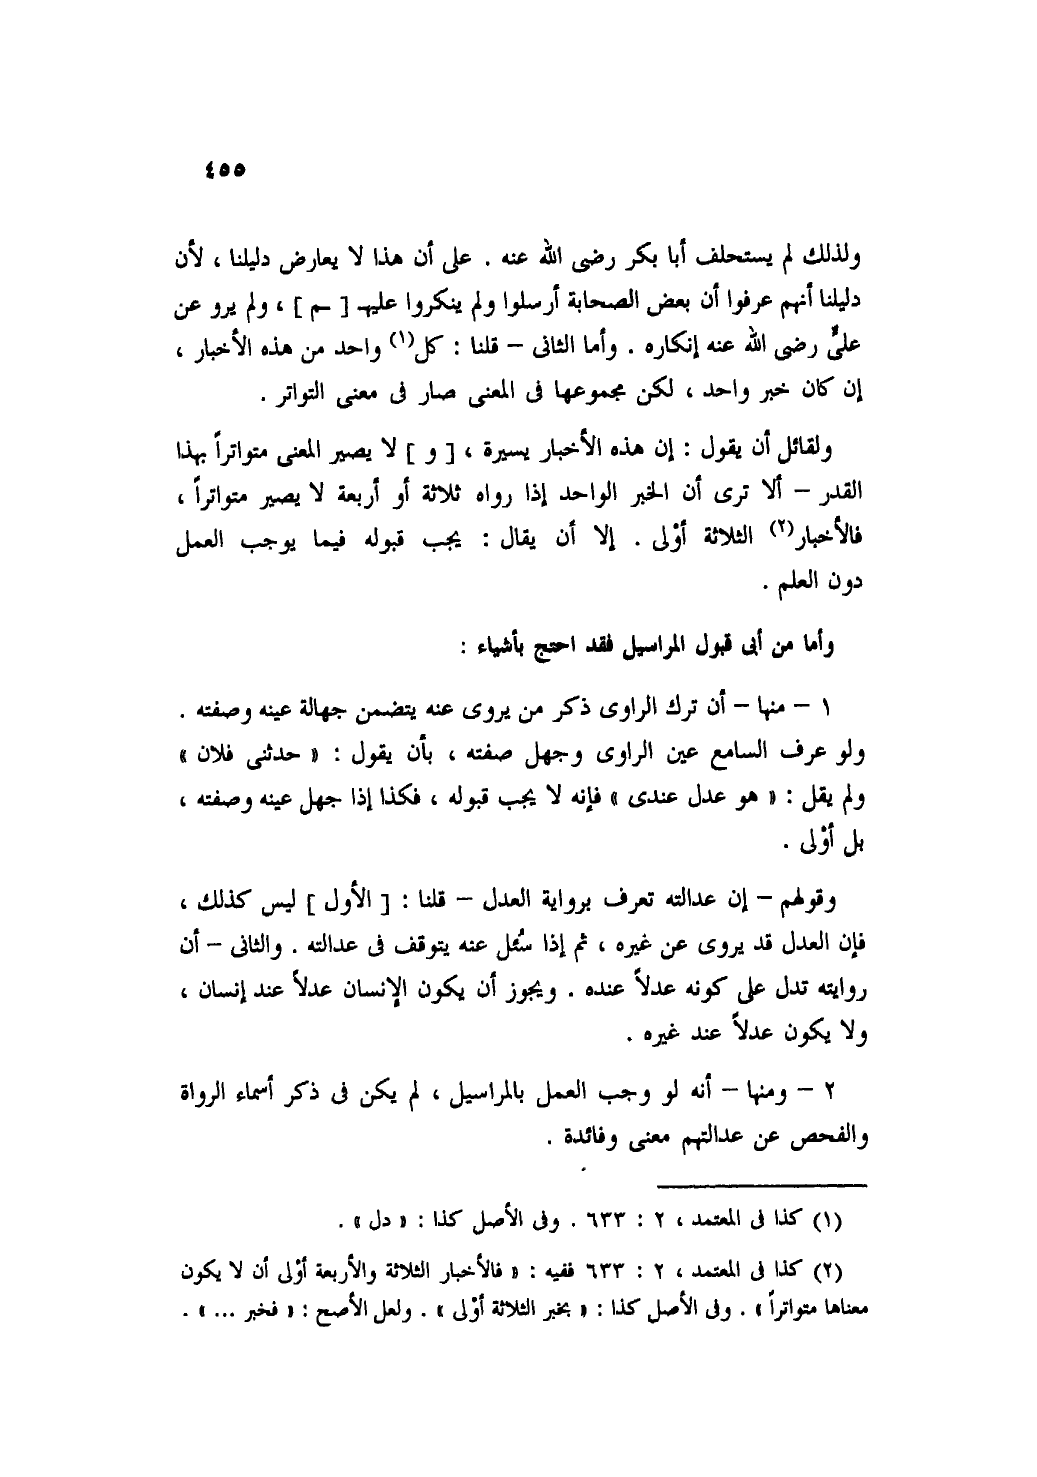 ٤٥٥
ولذلك لم يستحلف أبا بكر رضى الله عنه . على أن هذا لا يعارض دليلنا ، لأن
دليلنا أنهم عرفوا أن بعض الصحابة أرسلوا ولم ينكروا عليهـ [ ـم ] ، ولم يرو عن
علىٍّ رضى الله عنه إنكاره . وأما الثانى – قلنا : كل(١) واحد من هذه الأخبار ،
إن كان خبر واحد ، لكن مجموعها فى المعنى صار فى معنى التواتر .
ولقائل أن يقول : إن هذه الأخبار يسيرة ، [ و ] لا يصير المعنى متواتراً بهذا
القدر – ألا ترى أن الخبر الواحد إذا رواه ثلاثة أو أربعة لا يصير متواتراً ،
فالأخبار(٢) الثلاثة أوْلى . إلا أن يقال : يجب قبوله فيما يوجب العمل
دون العلم .
وأما من أبى قبول المراسيل فقد احتج بأشياء :
١ – منها – أن ترك الراوى ذكر من يروى عنه يتضمن جهالة عينه وصفته .
ولو عرف السامع عين الراوى وجهل صفته ، بأن يقول : « حدثنى فلان »
ولم يقل : « هو عدل عندى » فإنه لا يجب قبوله ، فكذا إذا جهل عينه وصفته ،
بل أوْلى .
وقولهم – إن عدالته تعرف برواية العدل – قلنا : [ الأول ] ليس كذلك ،
فإن العدل قد يروى عن غيره ، ثم إذا سُئل عنه يتوقف فى عدالته . والثانى – أن
روايته تدل على كونه عدلاً عنده . ويجوز أن يكون الإنسان عدلاً عند إنسان ،
ولا يكون عدلاً عند غيره .
٢ – ومنها – أنه لو وجب العمل بالمراسيل ، لم يكن فى ذكر أسماء الرواة
والفحص عن عدالتهم معنى وفائدة .
(١) كذا فى المعتمد ، ٢ : ٦٣٣ . وفى الأصل كذا : « دل » .
(٢) كذا فى المعتمد ، ٢ : ٦٣٣ ففيه : « فالأخبار الثلاثة والأربعة أوْلى أن لا يكون
معناها متواتراً » . وفى الأصل كذا : « بخبر الثلاثة أوْلى » . ولعل الأصح : « فخبر ... » .